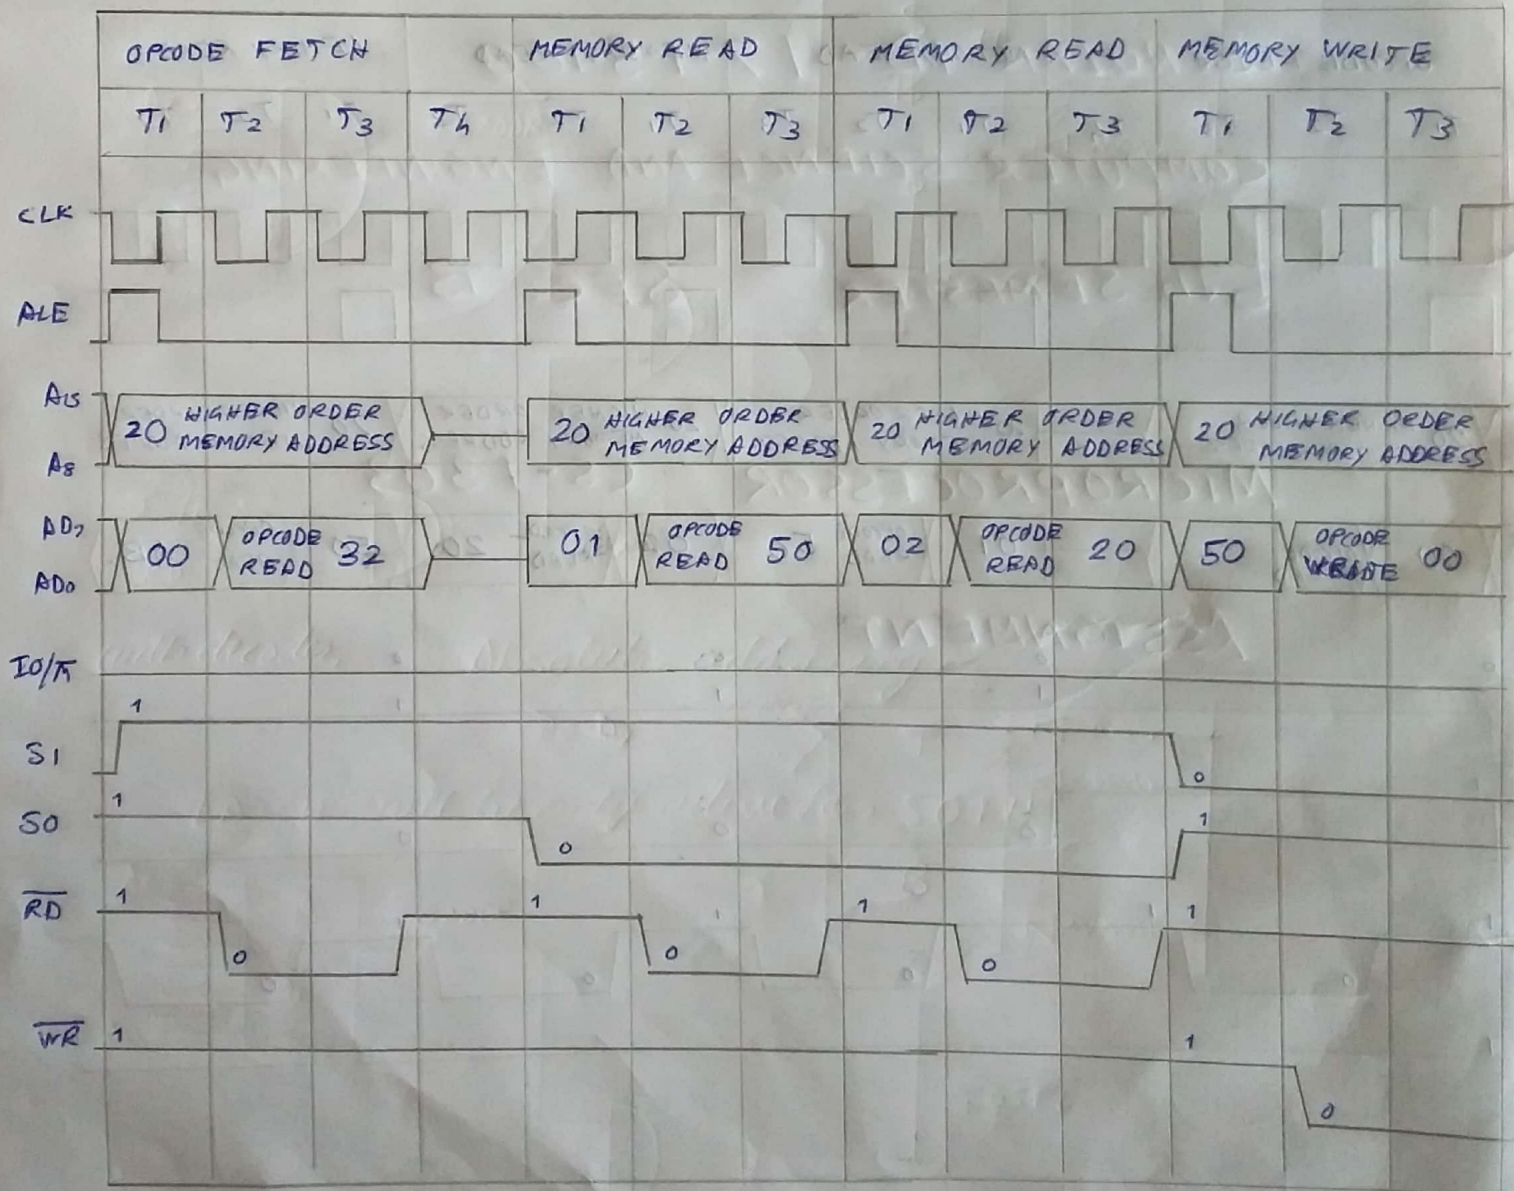 OPCODE FETCH MEMORY READ MEMORY READ MEMORY WRITE
T1 T2 T3 T4 T1 T2 T3 T1 T2 T3 T1 T2 T3
CLK
ALE
A15
20 HIGHER ORDER MEMORY ADDRESS 20 HIGHER ORDER MEMORY ADDRESS 20 HIGHER ORDER MEMORY ADDRESS 20 HIGHER ORDER MEMORY ADDRESS
A8
AD7
00 OPCODE READ 32 01 OPCODE READ 50 02 OPCODE READ 20 50 OPCODE WRITE 00
AD0
IO/M̅
1
S1
0
1
S0 1
0
R̅D̅ 1 1 1 1
0 0 0
W̅R̅ 1 1
0